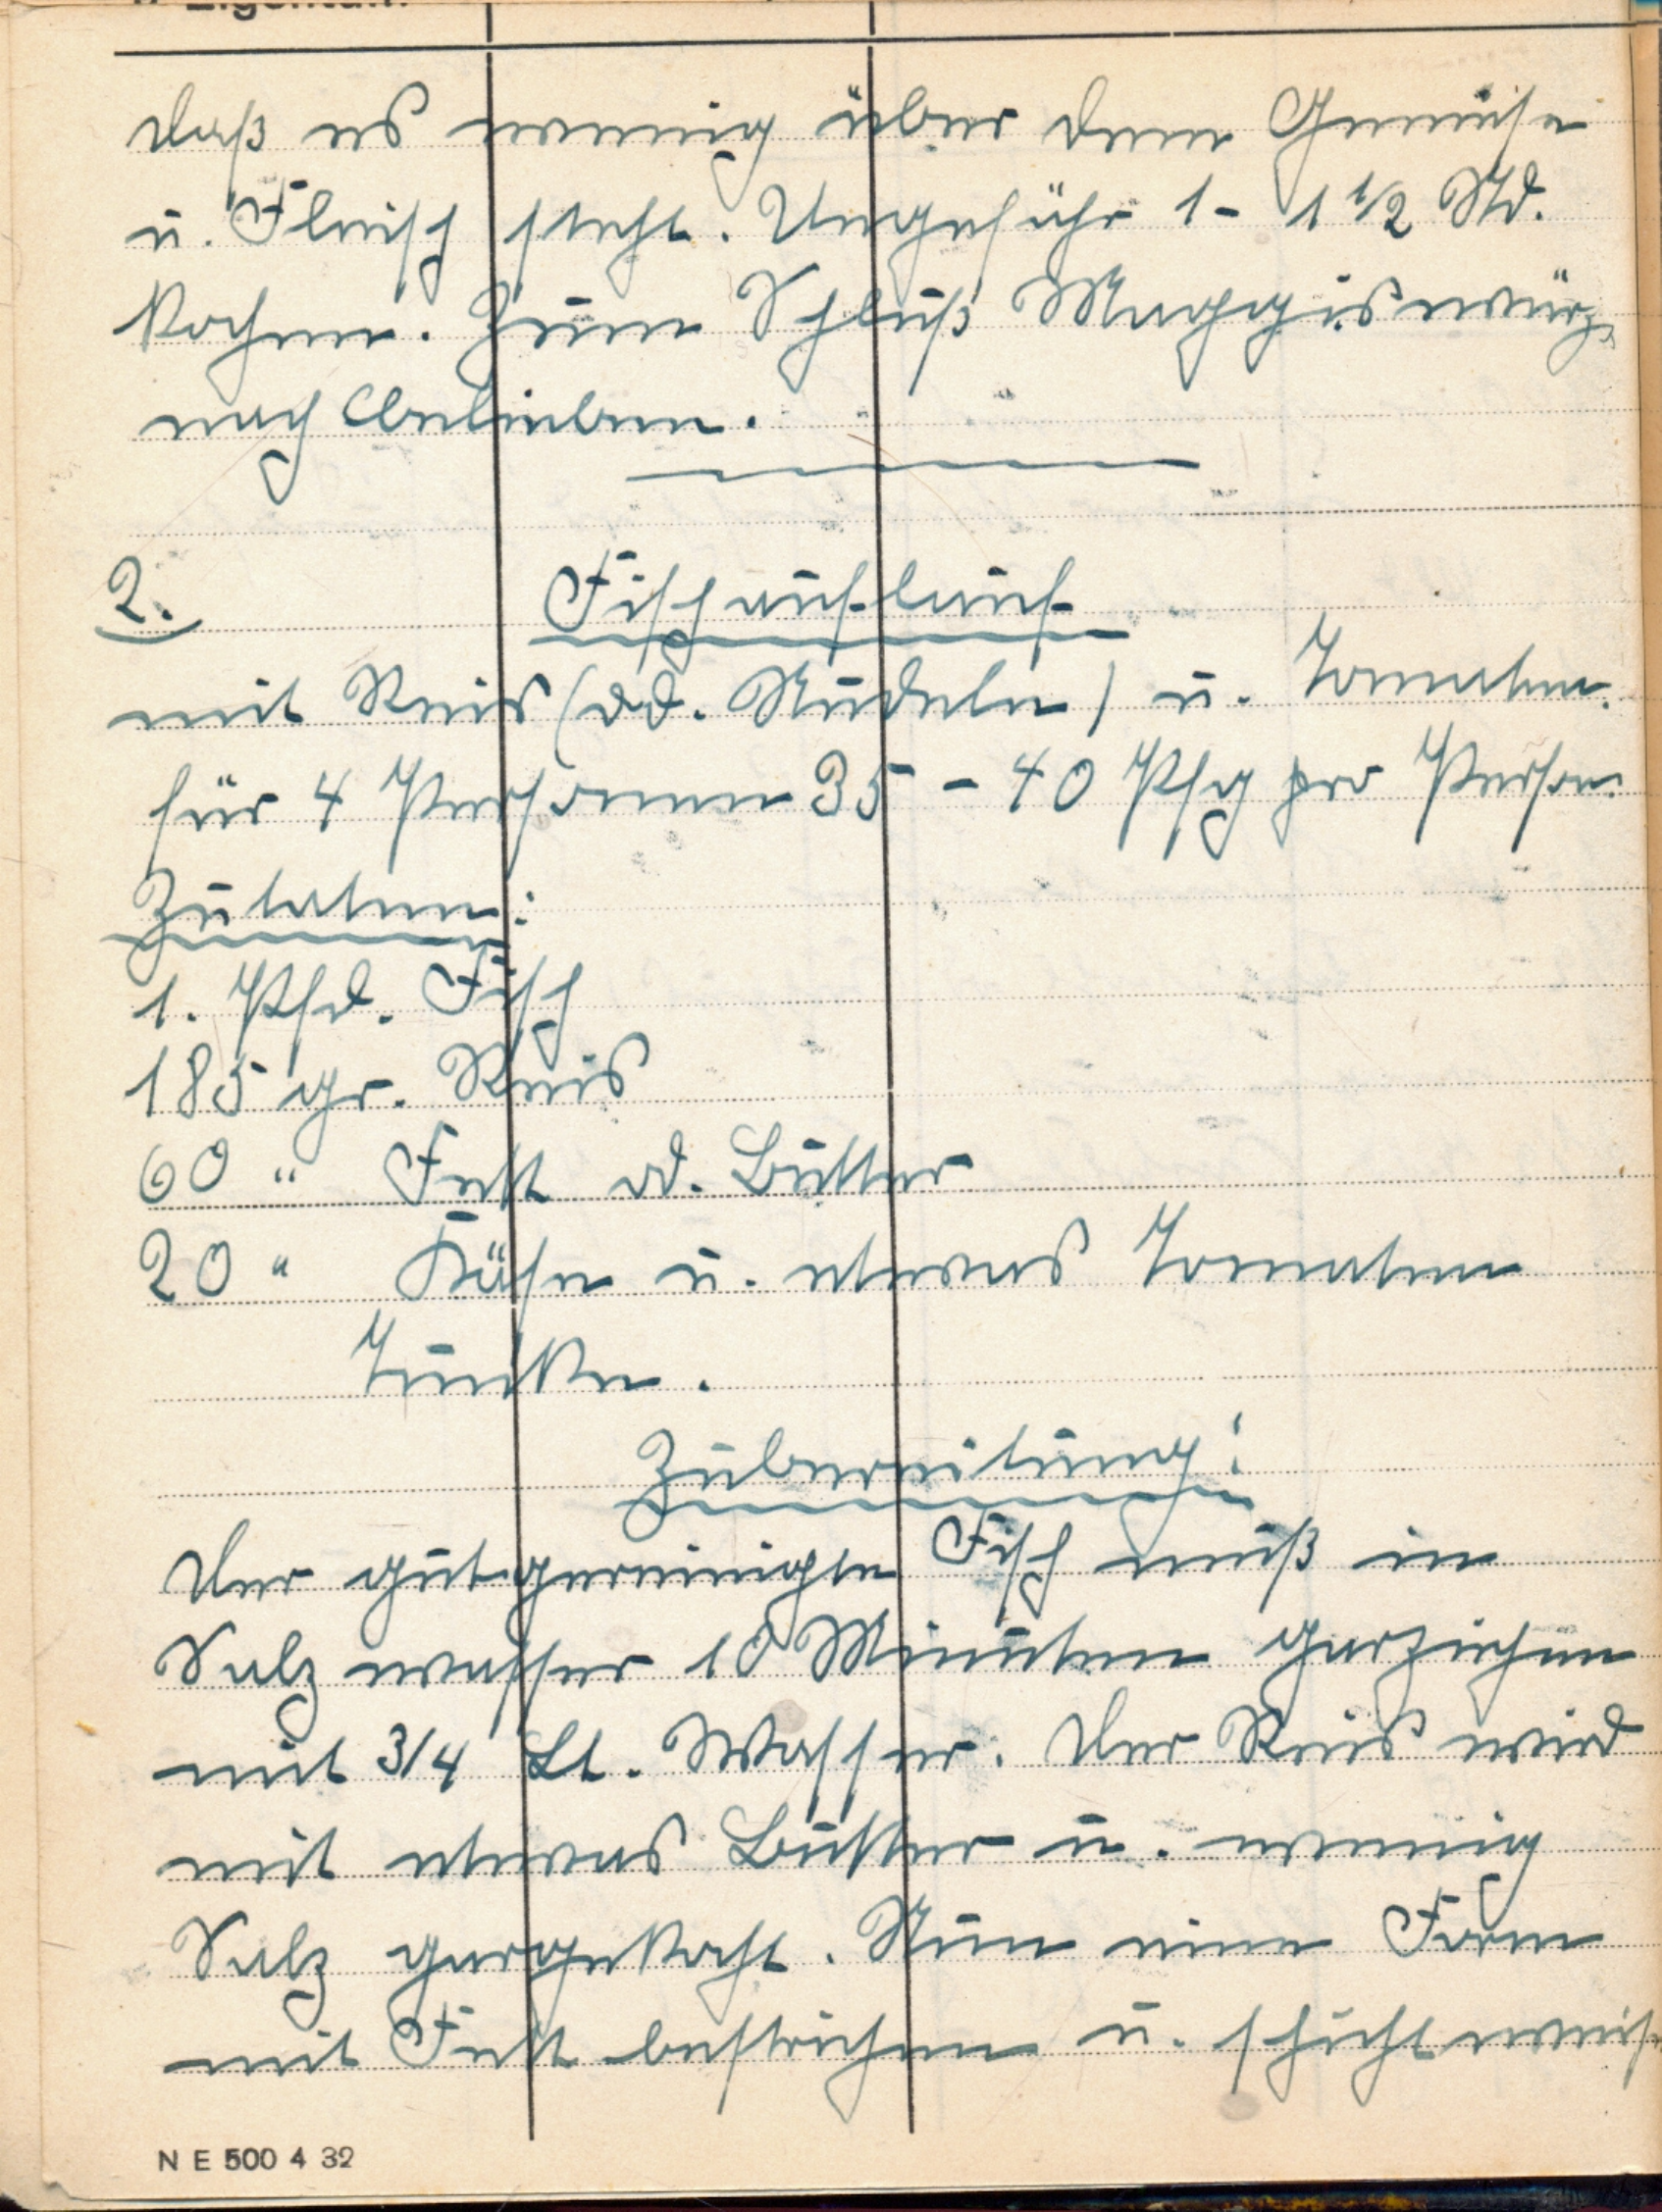 Eigentum
daß es wenig über dem Gemüse
u. Fleisch steht. Ungefähr 1 - 1 1/2 Std.
kochen. Zum Schluß Maggiswürze
nach Belieben.
2. Fischauflauf
mit Reis (od. Nudeln) u. Tomaten.
für 4 Personen 35 - 40 Pfg pro Person.
Zutaten:
1. Pfd. Fisch
185 gr. Reis
60 " Fett od. Butter
20 " Käse u. etwas Tomaten
Tunke.
Zubereitung:
Der gutgereinigte Fisch muß in
Salz wasser 10 Minuten garziehen
mit 3/4 Lt. Wasser. Der Reis wird
mit etwas Butter u. wenig
Salz gargekocht. Nun eine Form
mit Fett bestrichen u. schichtweise
N E 500 4 32